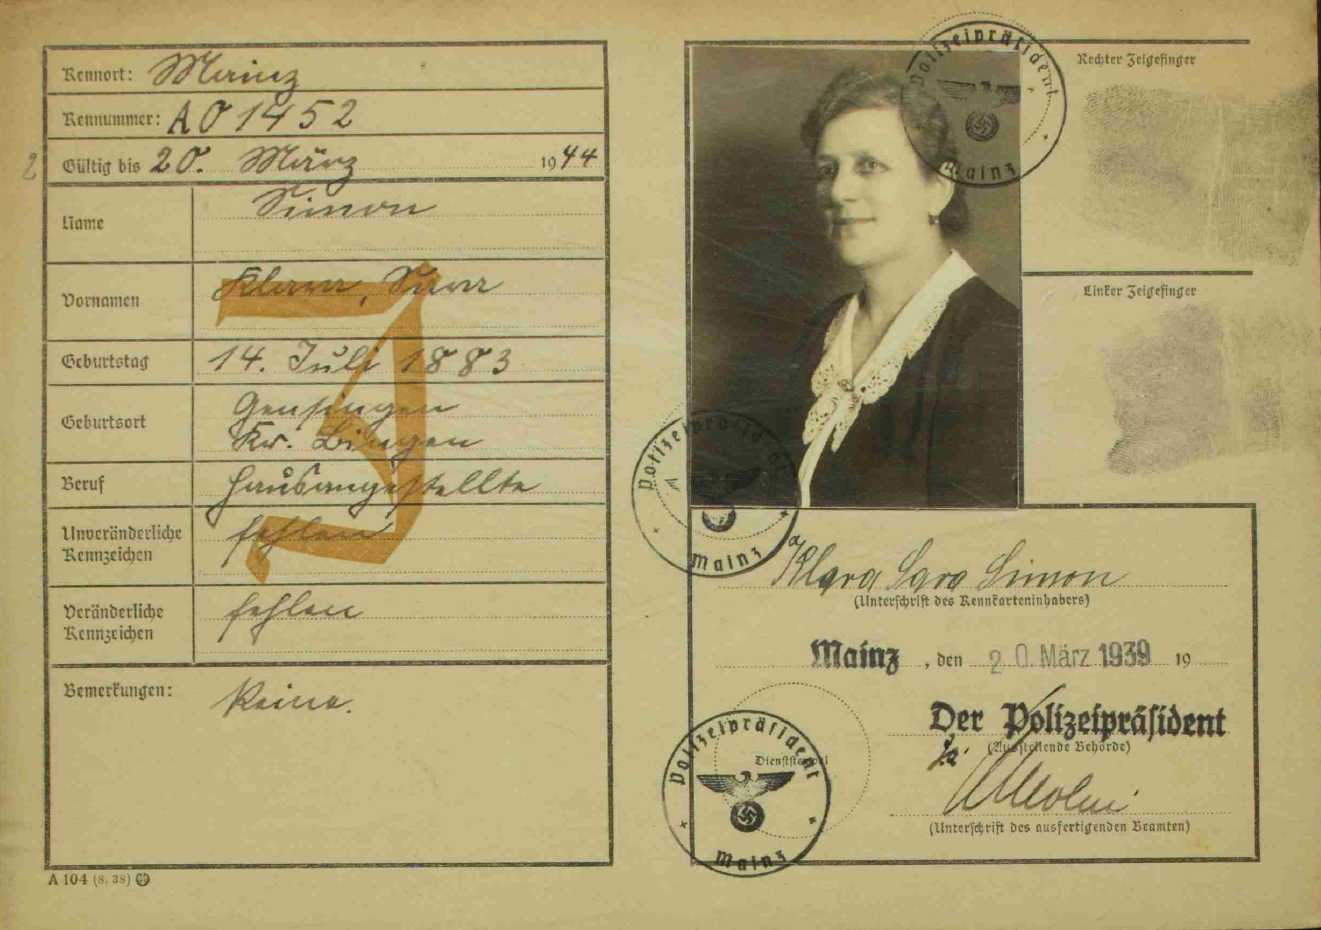 Kennort: Mainz
Kennummer: A01452
Gültig bis 20. März 1944
Name Simon
Vornamen Klara, Sara
J
Geburtstag 14. Juli 1883
Geburtsort Gensingen
Kr. Bingen
Beruf Hausangestellte
Unveränderliche Kennzeichen fehlen
Veränderliche Kennzeichen fehlen
Bemerkungen: Keine.
A 104 (8. 38)
2
Rechter Zeigefinger
Linker Zeigefinger
Polizeipräsident
Mainz
Polizeipräsident
Mainz
Klara Sara Simon
(Unterschrift des Kennkarteninhabers)
Mainz, den 20. März 1939 19
Der Polizeipräsident
(Ausstellende Behörde)
Polizeipräsident
Dienststempel
Mainz
(Unterschrift des ausfertigenden Beamten)